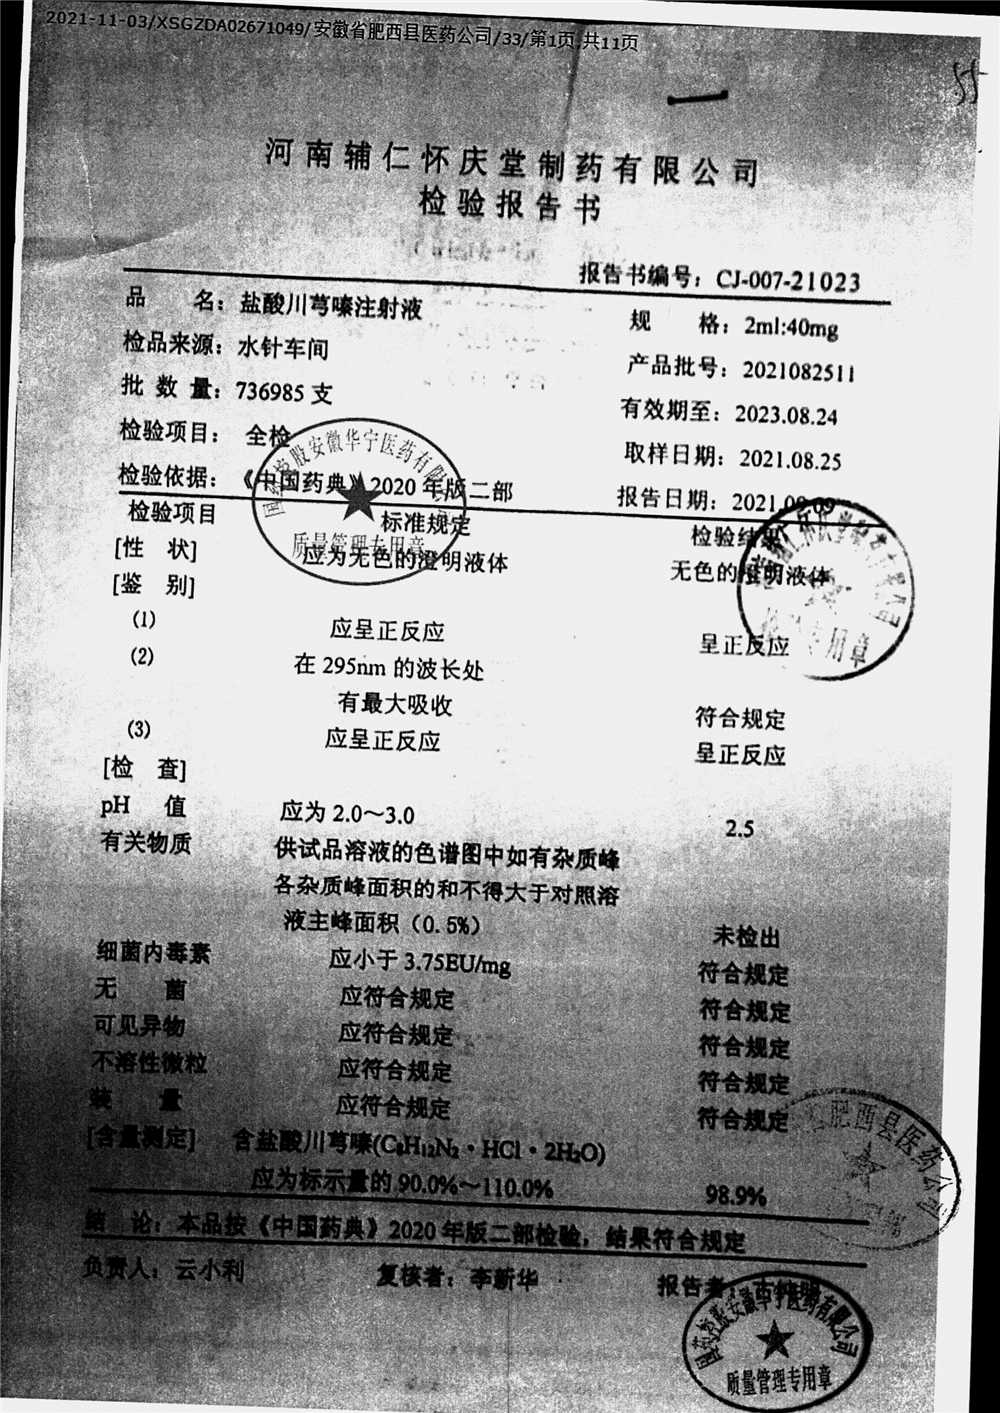 2021-11-03/XSGZDA02671049/安徽省肥西县医药公司/33/第1页,共11页
55
河南辅仁怀庆堂制药有限公司
检验报告书
报告书编号：CJ-007-21023
品 名：盐酸川芎嗪注射液 规 格：2ml:40mg
检品来源：水针车间 产品批号：2021082511
批 数 量：736985支 有效期至：2023.08.24
检验项目： 全检 取样日期：2021.08.25
检验依据：《中国药典》2020年版二部 报告日期：2021.09.09
检验项目 标准规定 检验结果
[性 状] 应为无色的澄明液体 无色的澄明液体
[鉴 别]
(1) 应呈正反应 呈正反应
(2) 在295nm的波长处
有最大吸收 符合规定
(3) 应呈正反应 呈正反应
[检 查]
pH 值 应为2.0～3.0 2.5
有关物质 供试品溶液的色谱图中如有杂质峰
各杂质峰面积的和不得大于对照溶
液主峰面积（0.5%） 未检出
细菌内毒素 应小于3.75EU/mg 符合规定
无 菌 应符合规定 符合规定
可见异物 应符合规定 符合规定
不溶性微粒 应符合规定 符合规定
装 量 应符合规定 符合规定
[含量测定] 含盐酸川芎嗪(C₈H₁₂N₂·HCl·2H₂O)
应为标示量的90.0%～110.0% 98.9%
结 论：本品按《中国药典》2020年版二部检验，结果符合规定
负责人：云小利 复核者：李新华 报告者：
国药控股安徽华宁医药有限公司
质量管理专用章
专用章
肥西县医药公司
国药控股安徽华宁医药有限公司
质量管理专用章